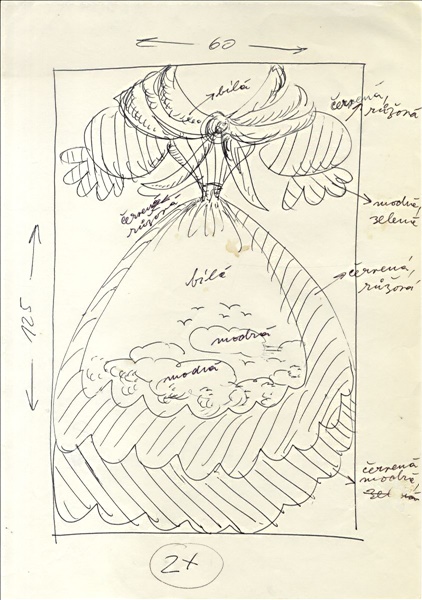 60
bílá
červená,
růžová
modrá,
zelená
červená
růžová
červená,
růžová
bílá
125
modrá
modrá
červená
modrá,
2x